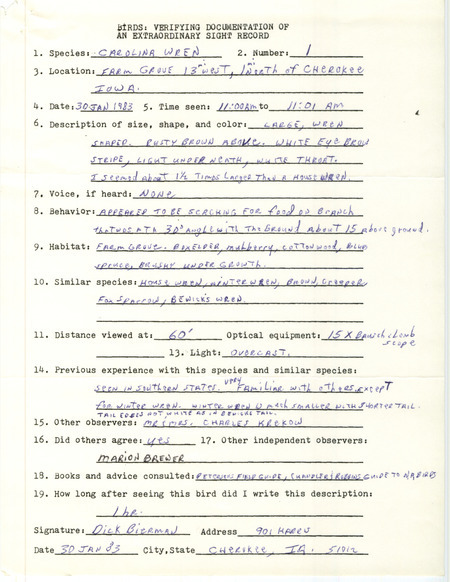 BIRDS: VERIFYING DOCUMENTATION OF
AN EXTRAORDINARY SIGHT RECORD
1. Species: CAROLINA WREN 2. Number: 1
3. Location: FARM GROVE 13 m west, 1 m North of CHEROKEE
IOWA.
4. Date: 30 JAN 1983 5. Time seen: 11:00 AM to 11:01 AM
6. Description of size, shape, and color: LARGE, WREN
SHAPED. RUSTY BROWN ABOVE. WHITE EYE BROW
STRIPE, LIGHT UNDERNEATH, WHITE THROAT.
I seemed about 1½ TIMES LARGER THAN A HOUSE WREN.
7. Voice, if heard: NONE
8. Behavior: APPEARED TO BE SERCHING FOR food ON BRANCH
that was at a 30° angle with THE GROUND About 15 above ground.
9. Habitat: FARM GROVE. BOXELDER, mulberry, COTTONWOOD, BLUE
SPRUCE, BRUSHY UNDER GROWTH.
10. Similar species: HOUSE WREN, WINTER WREN, BROWN CREEPER
FOX SPARROW, BEWICK'S WREN.
11. Distance viewed at: 60' Optical equipment: 15 X Bausch & Lomb
scope
13. Light: OVERCAST.
14. Previous experience with this species and similar species:
SEEN IN SOUTHERN STATES. VERY FAMILIAR WITH OTHERS EXCEPT
FOR WINTER WREN. WINTER WREN Much SMALLER WITH SHORTER TAIL.
TAIL EDGES NOT WHITE AS IN BEWICKS TAIL.
15. Other observers: MR & MRS. CHARLES KROKOW
16. Did others agree: yes 17. Other independent observers:
MARION BREWER
18. Books and advice consulted: PETERSONS FIELD GUIDE, CHANDLER ROBBINS GUIDE TO NA BIRDS
19. How long after seeing this bird did I write this description:
1 hr.
Signature: DICK BIERMAN Address 901 HAPPY
Date 30 JAN 83 City, State CHEROKEE, IA. 51012